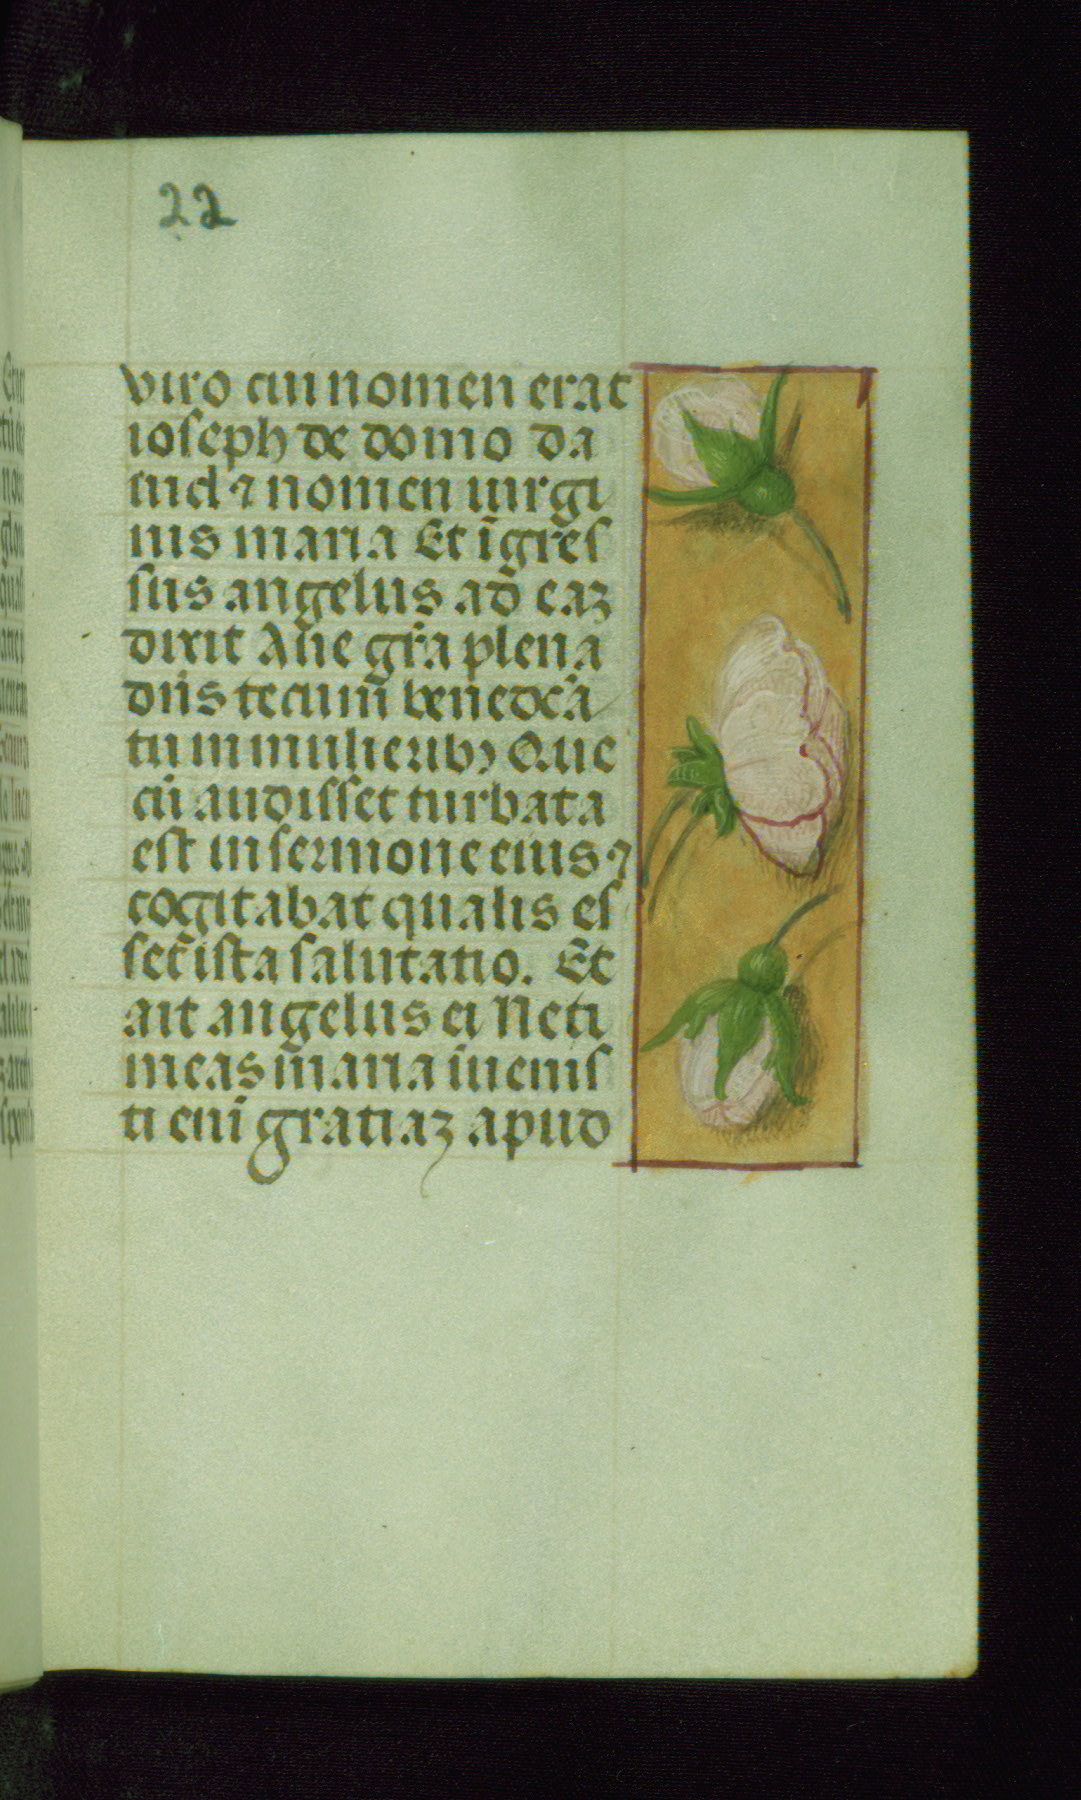 22
viro cui nomen erat
ioseph de domo da
uid ⁊ nomen uirgi
nis maria Et īgres
sus angelus ad eaꝫ
dixit Aue gr̄a plena
dn̄s tecum̄ benedc̄a
tu in mulieribꝰ Que
cū audisset turbata
est in sermone eius ⁊
cogitabat qualis es
set̄ ista salutatio. Et
ait angelus ei Ne ti
meas maria īuenis
ti eni̅ gratiaꝫ apud